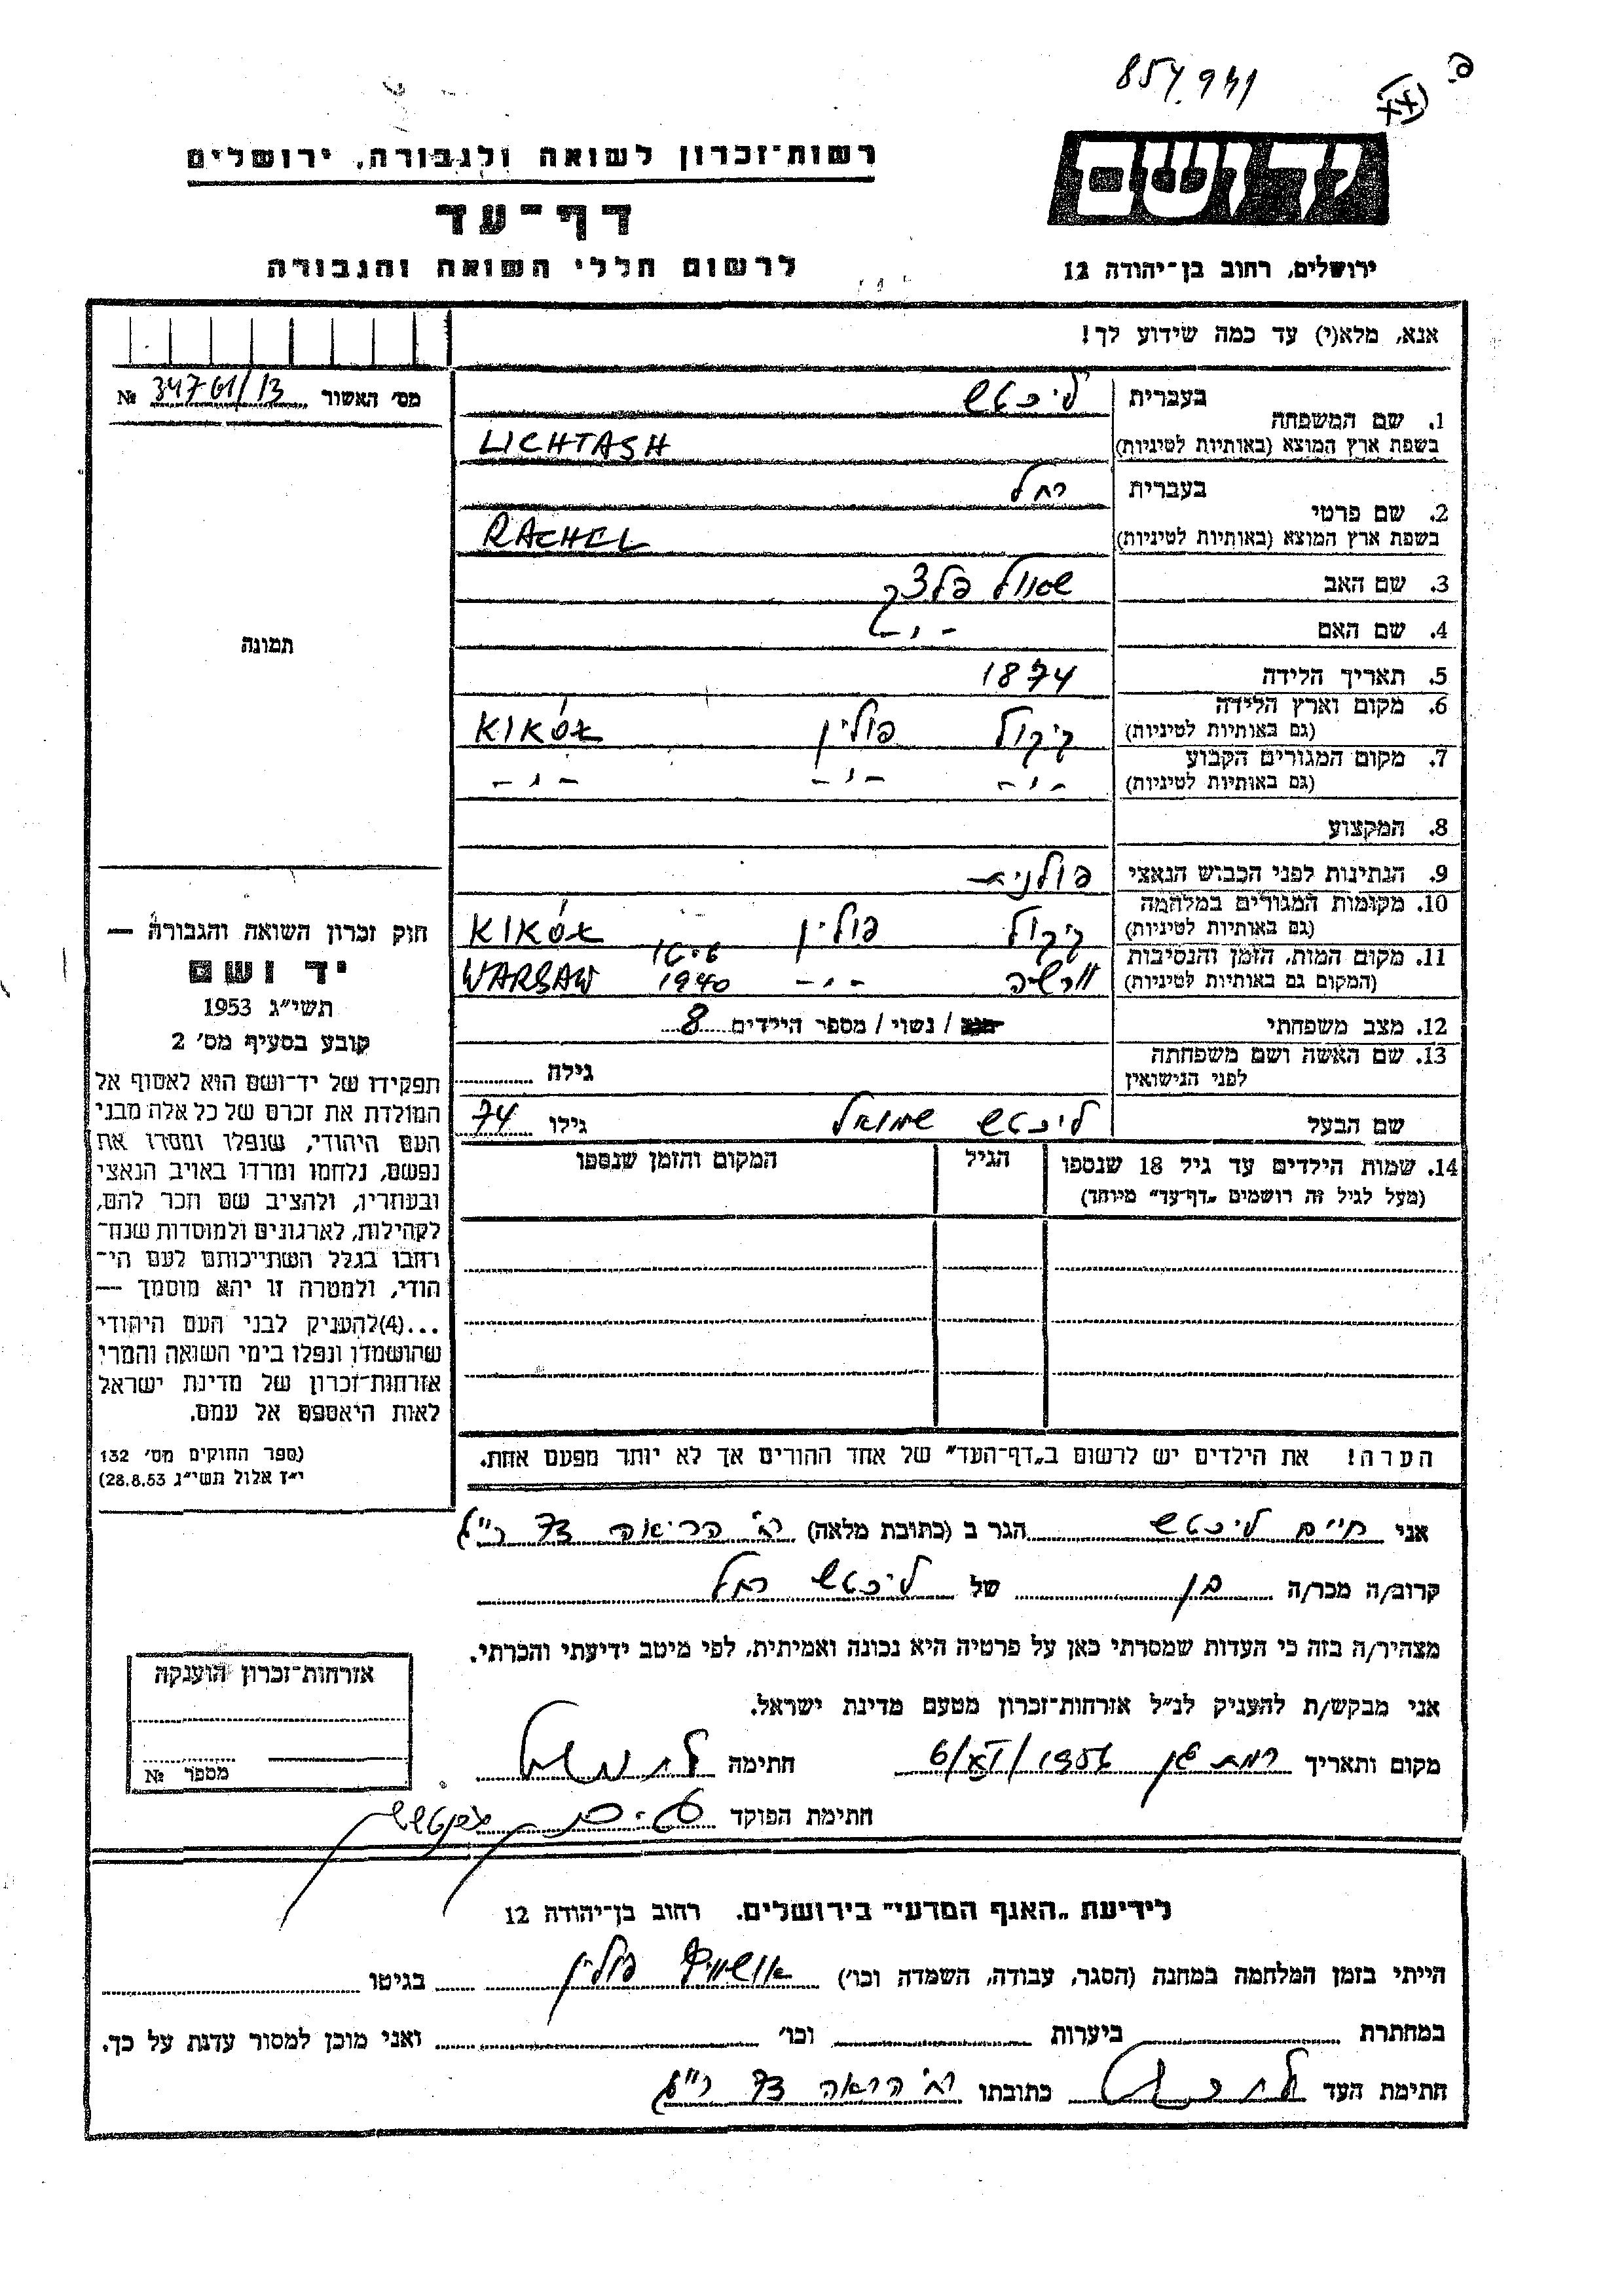 854941
רשות־זכרון לשואה ולגבורה, ירושלים
יד ושם
דף־עד
לרשום חללי השואה והגבורה
ירושלים, רחוב בן־יהודה 12
אנא, מלא(י) עד כמה שידוע לך!
מס׳ האשור 34761/13 №
בעברית ליכטש
1. שם המשפחה
בשפת ארץ המוצא (באותיות לטיניות) LICHTASH
בעברית רחל
2. שם פרטי
בשפת ארץ המוצא (באותיות לטיניות) RACHEL
3. שם האב
4. שם האם - ״ -
תמונה
5. תאריך הלידה 1874
6. מקום וארץ הלידה
(גם באותיות לטיניות) קיקול פולין KIKÓŁ
7. מקום המגורים הקבוע
(גם באותיות לטיניות) - ״ - - ״ - - ״ -
8. המקצוע
9. הנתינות לפני הכבוש הנאצי פולנית
10. מקומות המגורים במלחמה
(גם באותיות לטיניות) קיקול פולין KIKÓŁ
11. מקום המות, הזמן והנסיבות
(המקום גם באותיות לטיניות) ורשה - ״ - 1940 WARSAW
12. מצב משפחתי / נשוי / מספר הילדים 8
13. שם האשה ושם משפחתה
לפני הנישואין גילה
שם הבעל ליכטש שמואל גילו 74
14. שמות הילדים עד גיל 18 שנספו הגיל המקום והזמן שנספו
(מעל לגיל זה רושמים „דף־עד״ מיוחד)
חוק זכרון השואה והגבורה —
יד ושם
תשי״ג 1953
קובע בסעיף מס׳ 2
תפקידו של יד־ושם הוא לאסוף אל
המולדת את זכרם של כל אלה מבני
העם היהודי, שנפלו ומסרו את
נפשם, נלחמו ומרדו באויב הנאצי
ובעוזריו, ולהציב שם וזכר להם,
לקהילות, לארגונים ולמוסדות שנח־
רבו בגלל השתייכותם לעם הי־
הודי, ולמטרה זו יהא מוסמך —
...(4) להעניק לבני העם היהודי
שהושמדו ונפלו בימי השואה והמרי
אזרחות־זכרון של מדינת ישראל
לאות היאספם אל עמם.
(ספר החוקים מס׳ 132
י״ז אלול תשי״ג 28.8.53)
הערה! את הילדים יש לרשום ב„דף־העד״ של אחד ההורים אך לא יותר מפעם אחת.
אני חיים ליכטש הגר ב (כתובת מלאה) רח׳ הרואה 73 ר״ג
קרוב/ה מכר/ה בן של ליכטש רחל
מצהיר/ה בזה כי העדות שמסרתי כאן על פרטיה היא נכונה ואמיתית, לפי מיטב ידיעתי והכרתי.
אני מבקש/ת להעניק לנ״ל אזרחות־זכרון מטעם מדינת ישראל.
אזרחות־זכרון הוענקה
מספר №
מקום ותאריך רמת גן 6/XI/1956 חתימה
חתימת הפוקד
לידיעת „האגף המדעי״ בירושלים. רחוב בן־יהודה 12
הייתי בזמן המלחמה במחנה (הסגר, עבודה, השמדה וכו׳) אושוויץ פולין בגיטו
במחתרת ביערות וכו׳ ואני מוכן למסור עדות על כך.
חתימת העד כתובתו רח׳ הרואה 73 ר״ג